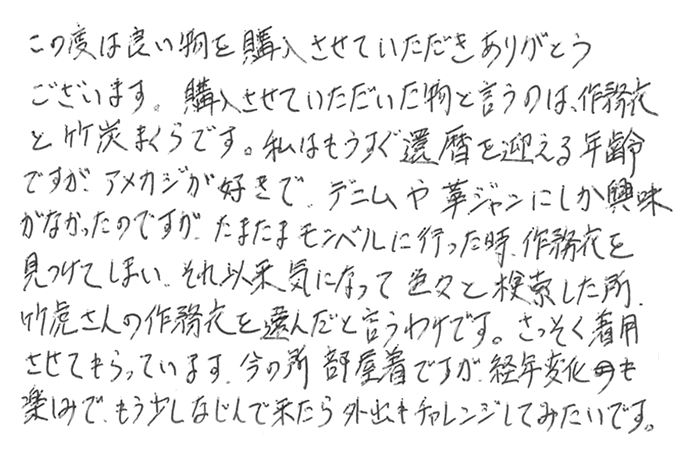 この度は良い物を購入させていただきありがとう
ございます。購入させていただいた物と言うのは、作務衣
と竹炭まくらです。私はもうすぐ還暦を迎える年齢
ですが、アメカジが好きで、デニムや革ジャンにしか興味
がなかったのですが、たまたまモンベルに行った時、作務衣を
見つけてしまい、それ以来気になって色々と検索した所、
竹虎さんの作務衣を選んだと言うわけです。さっそく着用
させてもらっています。今の所部屋着ですが、経年変化も
楽しみで、もう少しなじんで来たら外出もチャレンジしてみたいです。